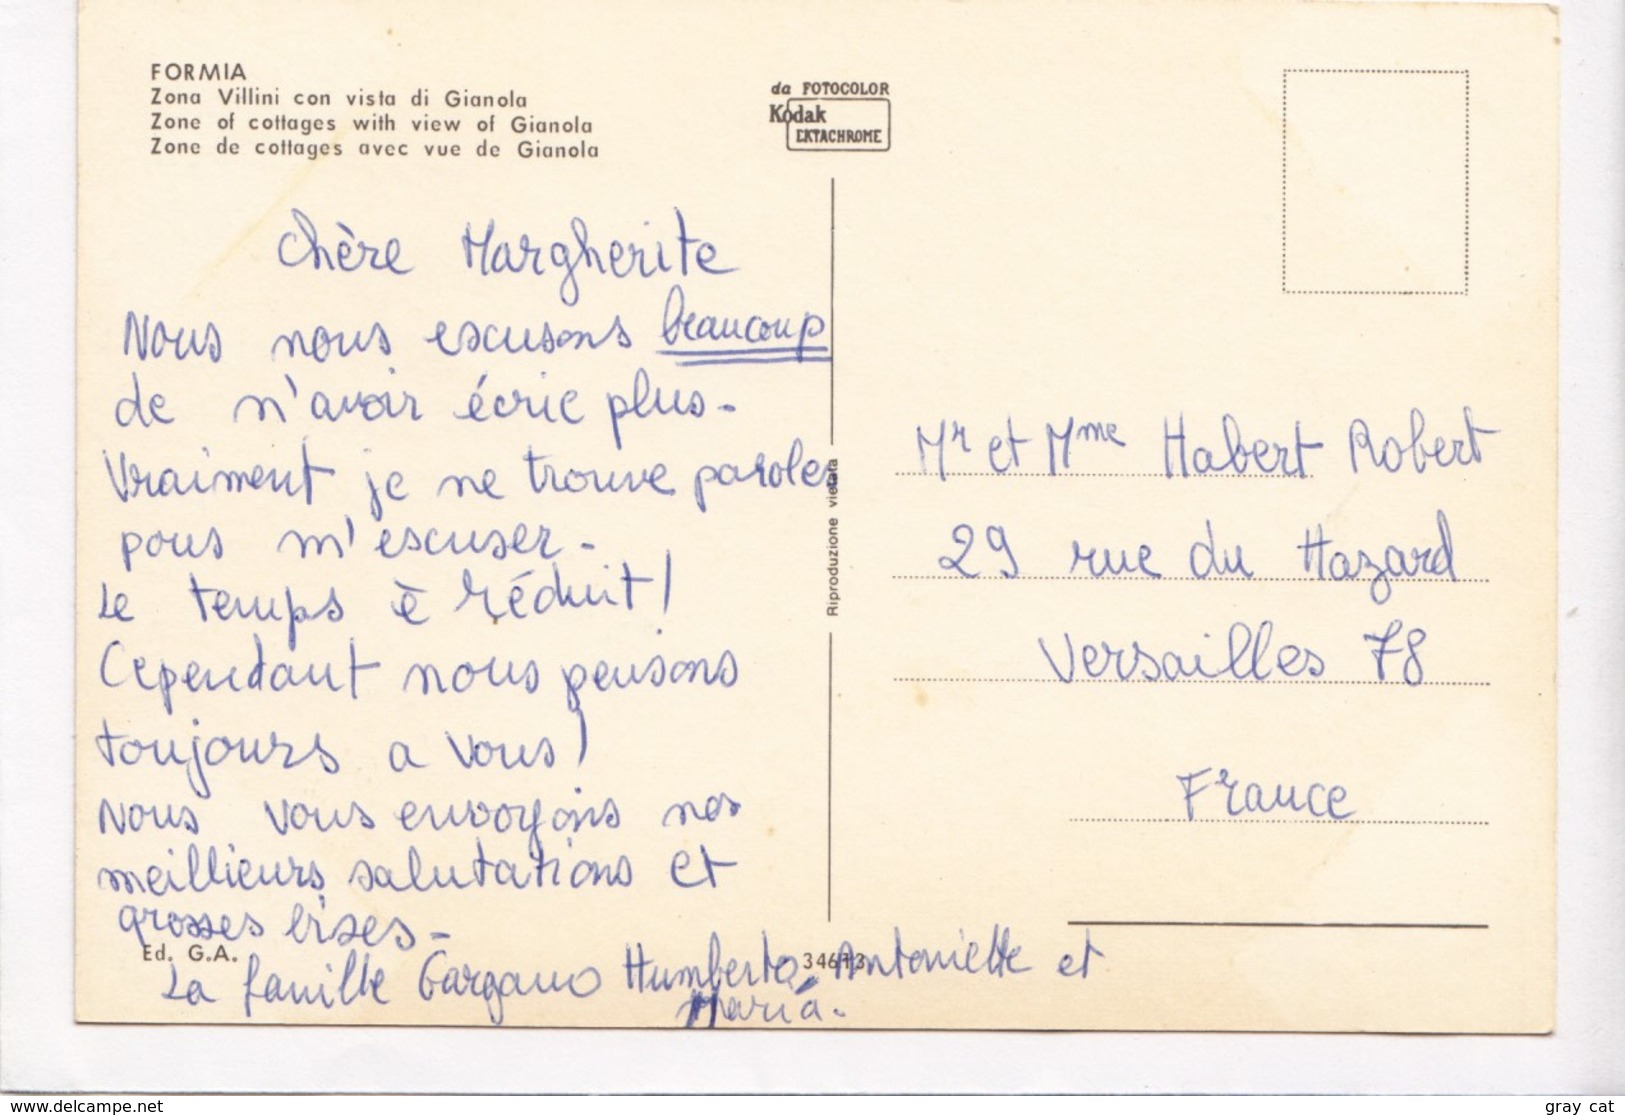 FORMIA
Zona Villini con vista di Gianola
Zone of cottages with view of Gianola
Zone de cottages avec vue de Gianola
da FOTOCOLOR
Kodak
EKTACHROME
Chère Margherite
Nous nous escusons beaucoup
de n'avoir écrie plus-
Vraiment je ne trouve paroles
pous m'escuser-
Le temps è réduit!
Cependant nous pensons
toujours a vous!
Nous vous envoyons nos
meillieurs salutations et
grosses bises-
La famille Gargano Humberto, Antoniette et
Maria.
Ed. G.A.
34613
Riproduzione vietata
Mr et Mme Habert Robert
29 rue du Hazard
Versailles 78
France
www.delcampe.net
gray cat